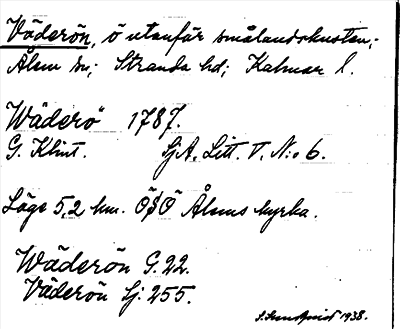 Väderön, ö utanför smålandskusten;
Ålem sn; Stranda hd; Kalmar l.
Wäderö 1787.
G. Klint. SjA. Litt. V. N:o 6.
Läge 5,2 km. ÖSÖ Ålems kyrka.
Wäderön G. 22.
Väderön Sj: 255.
1938.